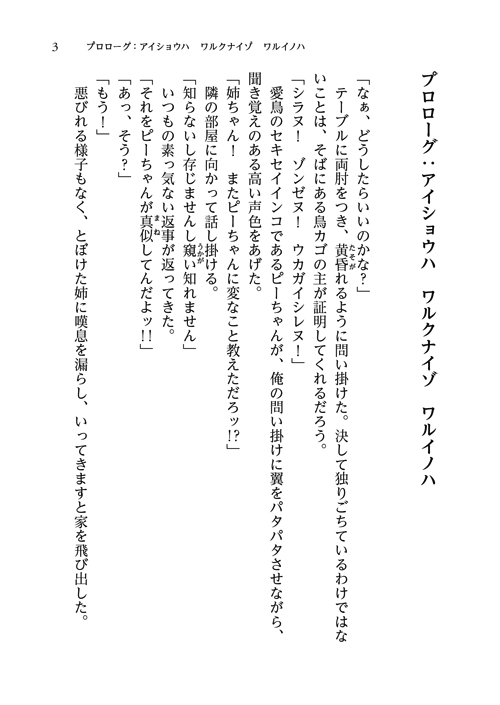 3　プロローグ：アイショウハ　ワルクナイゾ　ワルイノハ
プロローグ：アイショウハ　ワルクナイゾ　ワルイノハ
「なぁ、どうしたらいいのかな？」
テーブルに両肘をつき、黄昏れるように問い掛けた。決して独りごちているわけではな
いことは、そばにある鳥カゴの主が証明してくれるだろう。
「シラヌ！　ゾンゼヌ！　ウカガイシレヌ！」
愛鳥のセキセイインコであるピーちゃんが、俺の問い掛けに翼をパタパタさせながら、
聞き覚えのある高い声色をあげた。
「姉ちゃん！　またピーちゃんに変なこと教えただろッ!?」
隣の部屋に向かって話し掛ける。
「知らないし存じませんし窺い知れません」
いつもの素っ気ない返事が返ってきた。
「それをピーちゃんが真似してんだよッ!!」
「あっ、そう？」
「もう！」
悪びれる様子もなく、とぼけた姉に嘆息を漏らし、いってきますと家を飛び出した。